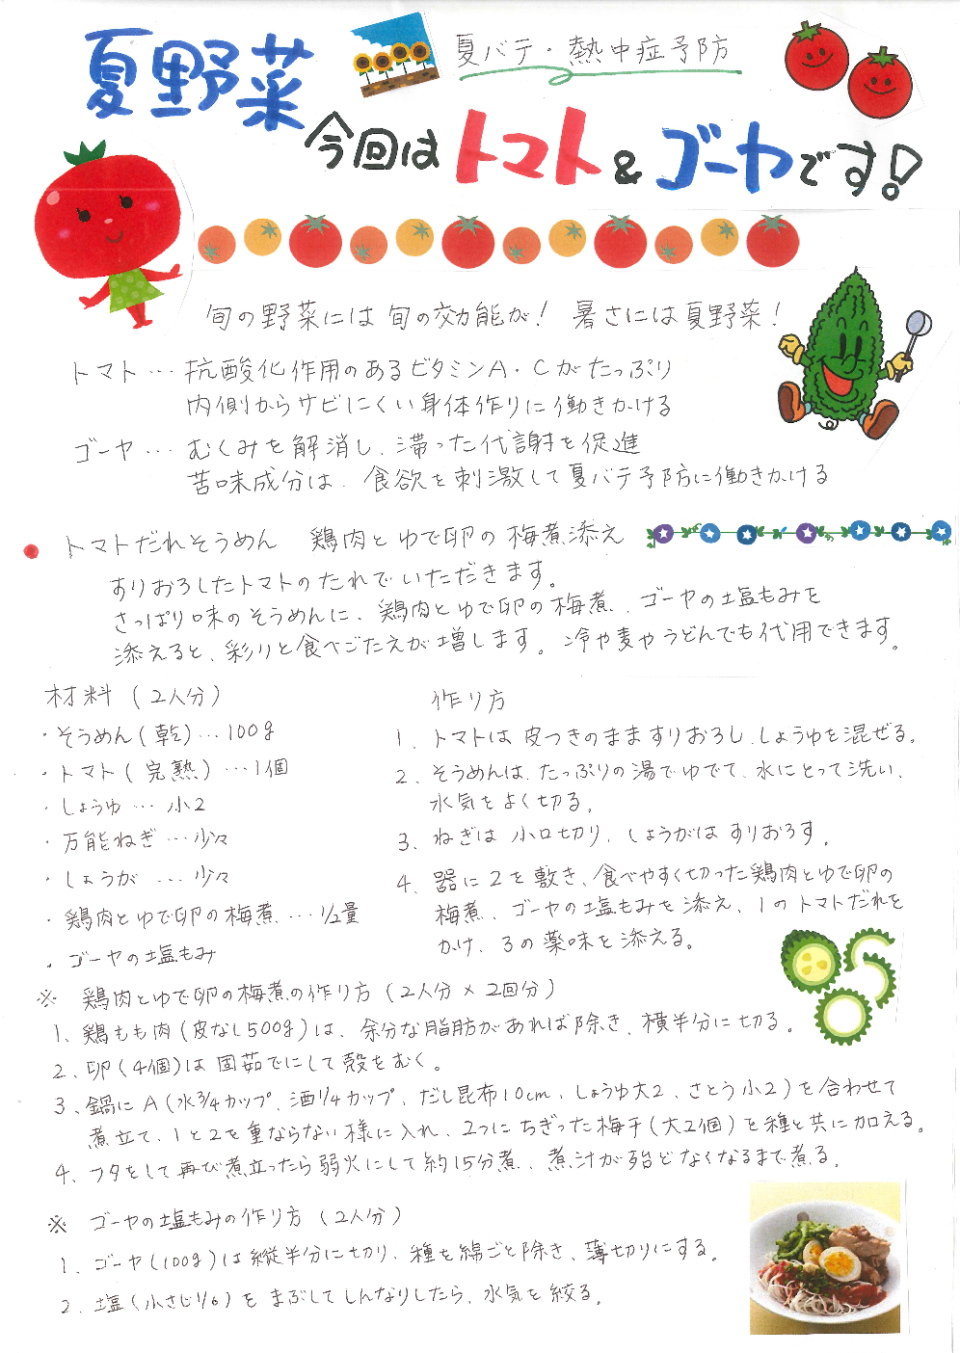 夏野菜
夏バテ・熱中症予防
今回は トマト & ゴーヤです!
旬の野菜には旬の効能が! 暑さには夏野菜!
トマト… 抗酸化作用のあるビタミンA・Cがたっぷり
内側からサビにくい身体作りに働きかける
ゴーヤ… むくみを解消し、滞った代謝を促進
苦味成分は、食欲を刺激して夏バテ予防に働きかける
トマトだれそうめん 鶏肉とゆで卵の梅煮添え
すりおろしたトマトのたれでいただきます。
さっぱり味のそうめんに、鶏肉とゆで卵の梅煮、ゴーヤの塩もみを
添えると、彩りと食べごたえが増します。冷や麦やうどんでも代用できます。
材料(2人分)
・そうめん(乾)…100g
・トマト(完熟)…1個
・しょうゆ… 小2
・万能ねぎ…少々
・しょうが …少々
・鶏肉とゆで卵の梅煮…1/2量
・ゴーヤの塩もみ
作り方
1. トマトは皮つきのまますりおろし、しょうゆを混ぜる。
2. そうめんは、たっぷりの湯でゆでて、水にとって洗い、
水気をよく切る。
3. ねぎは小口切り、しょうがはすりおろす。
4. 器に2を敷き、食べやすく切った鶏肉とゆで卵の
梅煮、ゴーヤの塩もみを添え、1のトマトだれを
かけ、3の薬味を添える。
※ 鶏肉とゆで卵の梅煮の作り方(2人分×2回分)
1. 鶏もも肉(皮なし500g)は、余分な脂肪があれば除き、横半分に切る。
2. 卵(4個)は固茹でにして殻をむく。
3. 鍋にA(水3/4カップ、酒1/4カップ、だし昆布10cm、しょうゆ大2、さとう小2)を合わせて
煮立て、1と2を重ならない様に入れ、2つにちぎった梅干(大2個)を種と共に加える。
4. フタをして再び煮立ったら弱火にして約15分煮、煮汁が殆どなくなるまで煮る。
※ ゴーヤの塩もみの作り方(2人分)
1. ゴーヤ(100g)は縦半分に切り、種を綿ごと除き、薄切りにする。
2. 塩(小さじ1/6)をまぶしてしんなりしたら、水気を絞る。